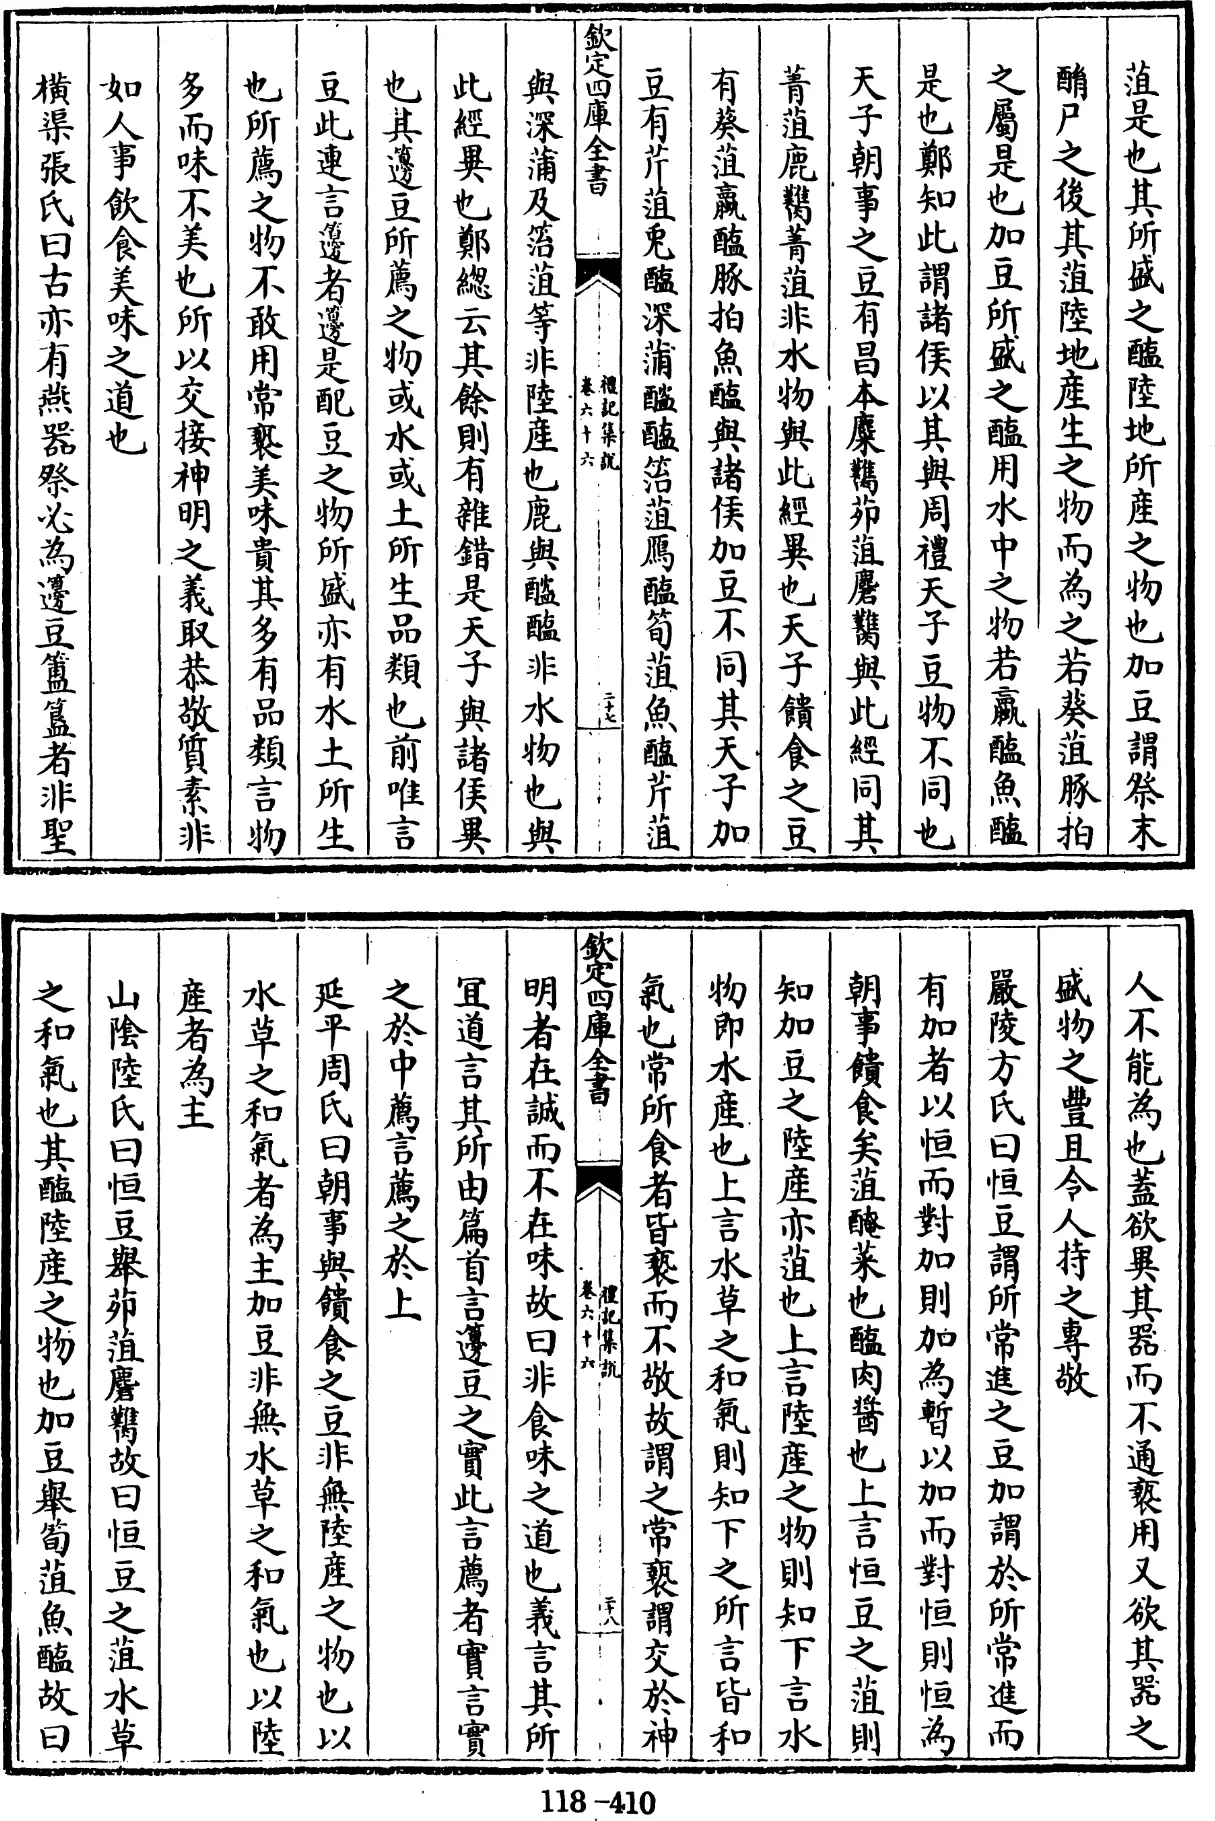 菹是也其所盛之醢陸地所産之物也加豆謂祭末
酳尸之後其菹陸地産生之物而為之若葵菹豚拍
之屬是也加豆所盛之醢用水中之物若蠃醢魚醢
是也鄭知此謂諸侯以其與周禮天子豆物不同也
天子朝事之豆有昌本麋臡茆菹麏臡與此經同其
菁菹鹿臡菁菹非水物與此經異也天子饋食之豆
有葵菹蠃醢豚拍魚醢與諸侯加豆不同其天子加
豆有芹菹兎醢深蒲醓醢箈菹鴈醢筍菹魚醢芹菹
欽定四庫全書
禮記集說
卷六十六
二十七
與深蒲及箈菹等非陸産也鹿與醓醢非水物也與
此經異也鄭總云其餘則有雜錯是天子與諸侯異
也其籩豆所薦之物或水或土所生品類也前唯言
豆此連言籩者籩是配豆之物所盛亦有水土所生
也所薦之物不敢用常褻美味貴其多有品類言物
多而味不美也所以交接神明之義取恭敬質素非
如人事飲食美味之道也
橫渠張氏曰古亦有燕器祭必為籩豆簠簋者非聖
人不能為也蓋欲異其器而不通褻用又欲其器之
盛物之豐且令人持之專敬
嚴陵方氏曰恒豆謂所常進之豆加謂於所常進而
有加者以恒而對加則加為暫以加而對恒則恒為
朝事饋食矣菹醃菜也醢肉醬也上言恒豆之菹則
知加豆之陸産亦菹也上言陸産之物則知下言水
物即水産也上言水草之和氣則知下之所言皆和
氣也常所食者皆褻而不敬故謂之常褻謂交於神
欽定四庫全書
禮記集說
卷六十六
二十八
明者在誠而不在味故曰非食味之道也義言其所
宜道言其所由篇首言籩豆之實此言薦者實言實
之於中薦言薦之於上
延平周氏曰朝事與饋食之豆非無陸産之物也以
水草之和氣者為主加豆非無水草之和氣也以陸
産者為主
山陰陸氏曰恒豆舉茆菹麏臡故曰恒豆之菹水草
之和氣也其醢陸産之物也加豆舉筍菹魚醢故曰
118-410